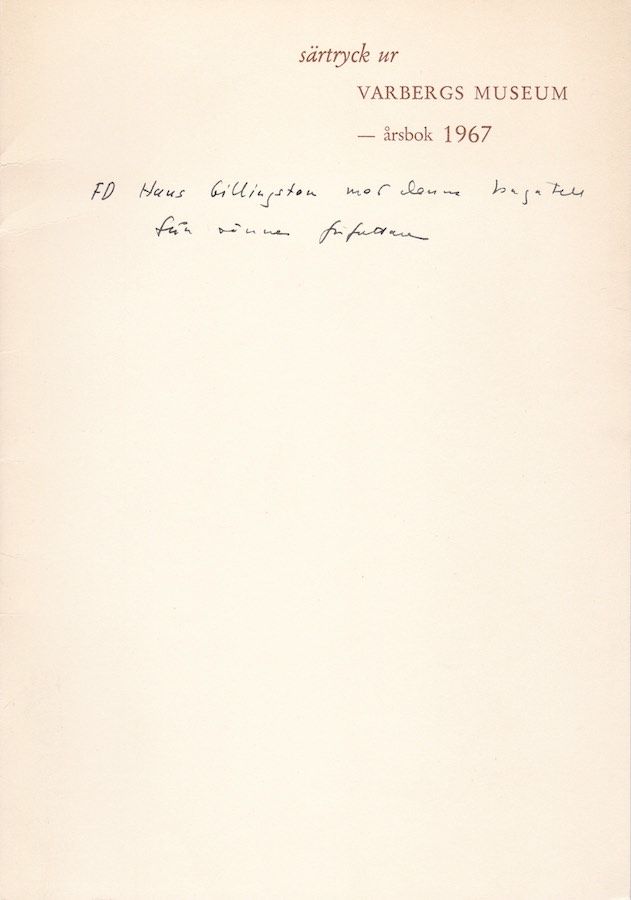 särtryck ur
VARBERGS MUSEUM
— årsbok 1967
FD Hans Gillingstam med denna bagatell
från vännen författaren